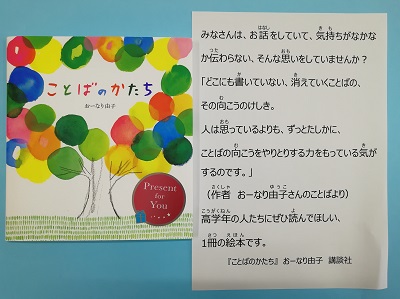 ことばのかたち
おーなり由子
Present for
You
みなさんは、お話をしていて、気持ちがなかな
か伝わらない、そんな思いをしていませんか？
「どこにも書いていない、消えていくことばの、
その向こうのけしき。
人は思っているよりも、ずっとたしかに、
ことばの向こうをやりとりする力をもっている気が
するのです。」
（作者　おーなり由子さんのことばより）
高学年の人たちにぜひ読んでほしい、
1冊の絵本です。
『ことばのかたち』おーなり由子　講談社